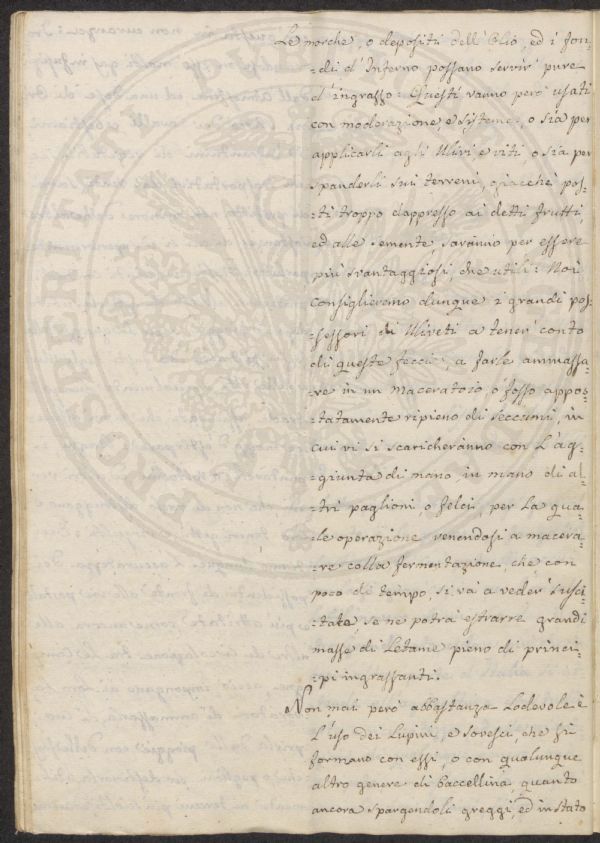 Le morche, o depositi dell'Olio, ed i fon=
=di d'Inferno possano servir pure
d'ingrasso: Questi vanno però usati
con moderazione, e sisteme, o sia per
applicarli agli Ulivi e viti, o sia per
spanderli sui terreni, giacchè pos=
=ti troppo dappresso ai detti frutti,
ed alle semente saranno per essere
più svantaggiosi, che utili: Noi
Consiglieremo dunque i grandi pos=
=sessori di Uliveti a tener conto
di queste feccie, a farle ammassa=
=re in un Maceratoio, o fosso appos=
=tatamente ripieno di seccumi, in
cui vi si scaricheranno con l'ag=
=giunta di mano, in mano di al=
=tri paglioni, o felci, per la qua=
=le operazione venendosi a macera=
=re colla fermentazione, che con
poco di tempo, si và a veder susci=
=tate, se ne potrà estrarre grandi
masse di Letame pieno di princi=
=pi ingrassanti.
Non mai però abbastanza Lodevole è
L'uso dei Lupini, e sovesci, che si
formano con essi, o con qualunque
altro genere di baccellina, quanto
ancora spargendoli greggi, ed in stato